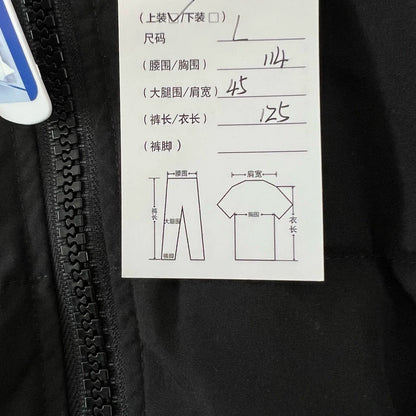 (上装☑/下装□)
尺码 L
(腰围/胸围) 114
(大腿围/肩宽) 45
(裤长/衣长) 125
(裤脚)
腰围 肩宽
裤长 大腿围 胸围 衣长
裤脚